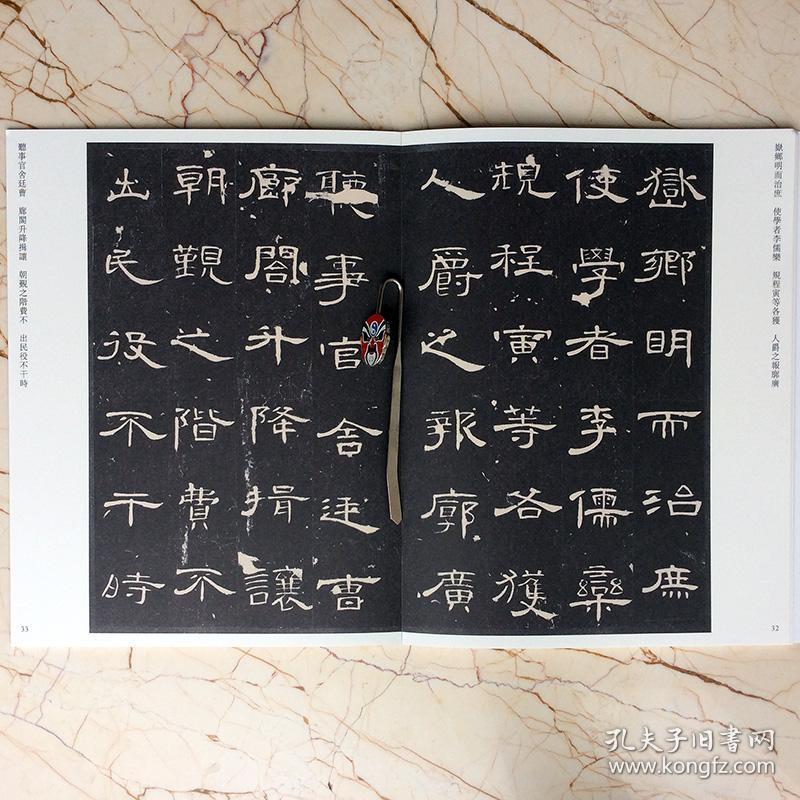 嶽鄉明而治庶　使學者李儒欒　規程寅等各獲　人爵之報廓廣
嶽鄉明而治庶
使學者李儒欒
規程寅等各獲
人爵之報廓廣
32
聽事官舍廷曹
廊閣升降揖讓
朝覲之階費不
出民役不干時
聽事官舍廷曹　廊閣升降揖讓　朝覲之階費不　出民役不干時
33
孔夫子旧书网
www.kongfz.com